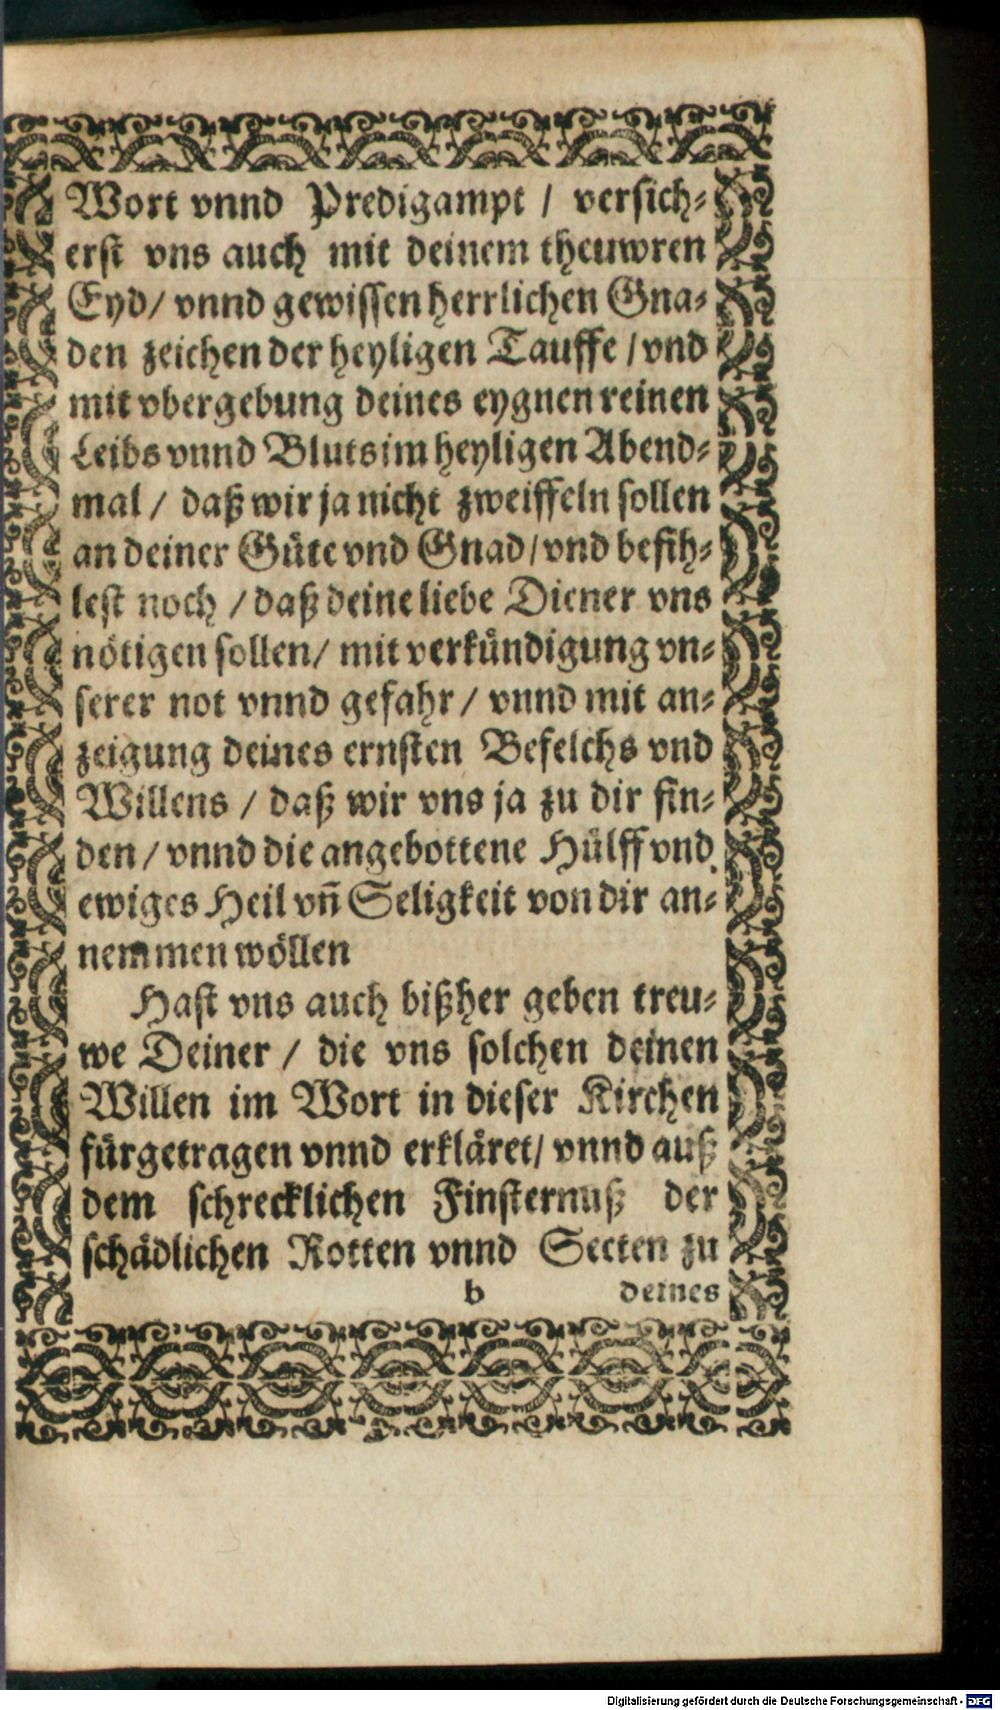 Wort vnnd Predigampt / versich⸗
erst vns auch mit deinem theuwren
Eyd/ vnnd gewissen herrlichen Gna⸗
den zeichen der heyligen Tauffe / vnd
mit vbergebung deines eygnen reinen
Leibs vnnd Bluts im heyligen Abend⸗
mal / daß wir ja nicht zweiffeln sollen
an deiner Güte vnd Gnad/ vnd befih⸗
lest noch / daß deine liebe Diener vns
nötigen sollen/ mit verkündigung vn⸗
serer not vnnd gefahr / vnnd mit an⸗
zeigung deines ernsten Befelchs vnd
Willens / daß wir vns ja zu dir fin⸗
den / vnnd die angebottene Hülff vnd
ewiges Heil vñ Seligkeit von dir an⸗
nemmen wöllen
Hast vns auch bißher geben treu⸗
we Deiner / die vns solchen deinen
Willen im Wort in dieser Kirchen
fürgetragen vnnd erkläret/ vnnd auß
dem schrecklichen Finsternuß der
schädlichen Rotten vnnd Secten zu
b deines
Digitalisierung gefördert durch die Deutsche Forschungsgemeinschaft - DFG